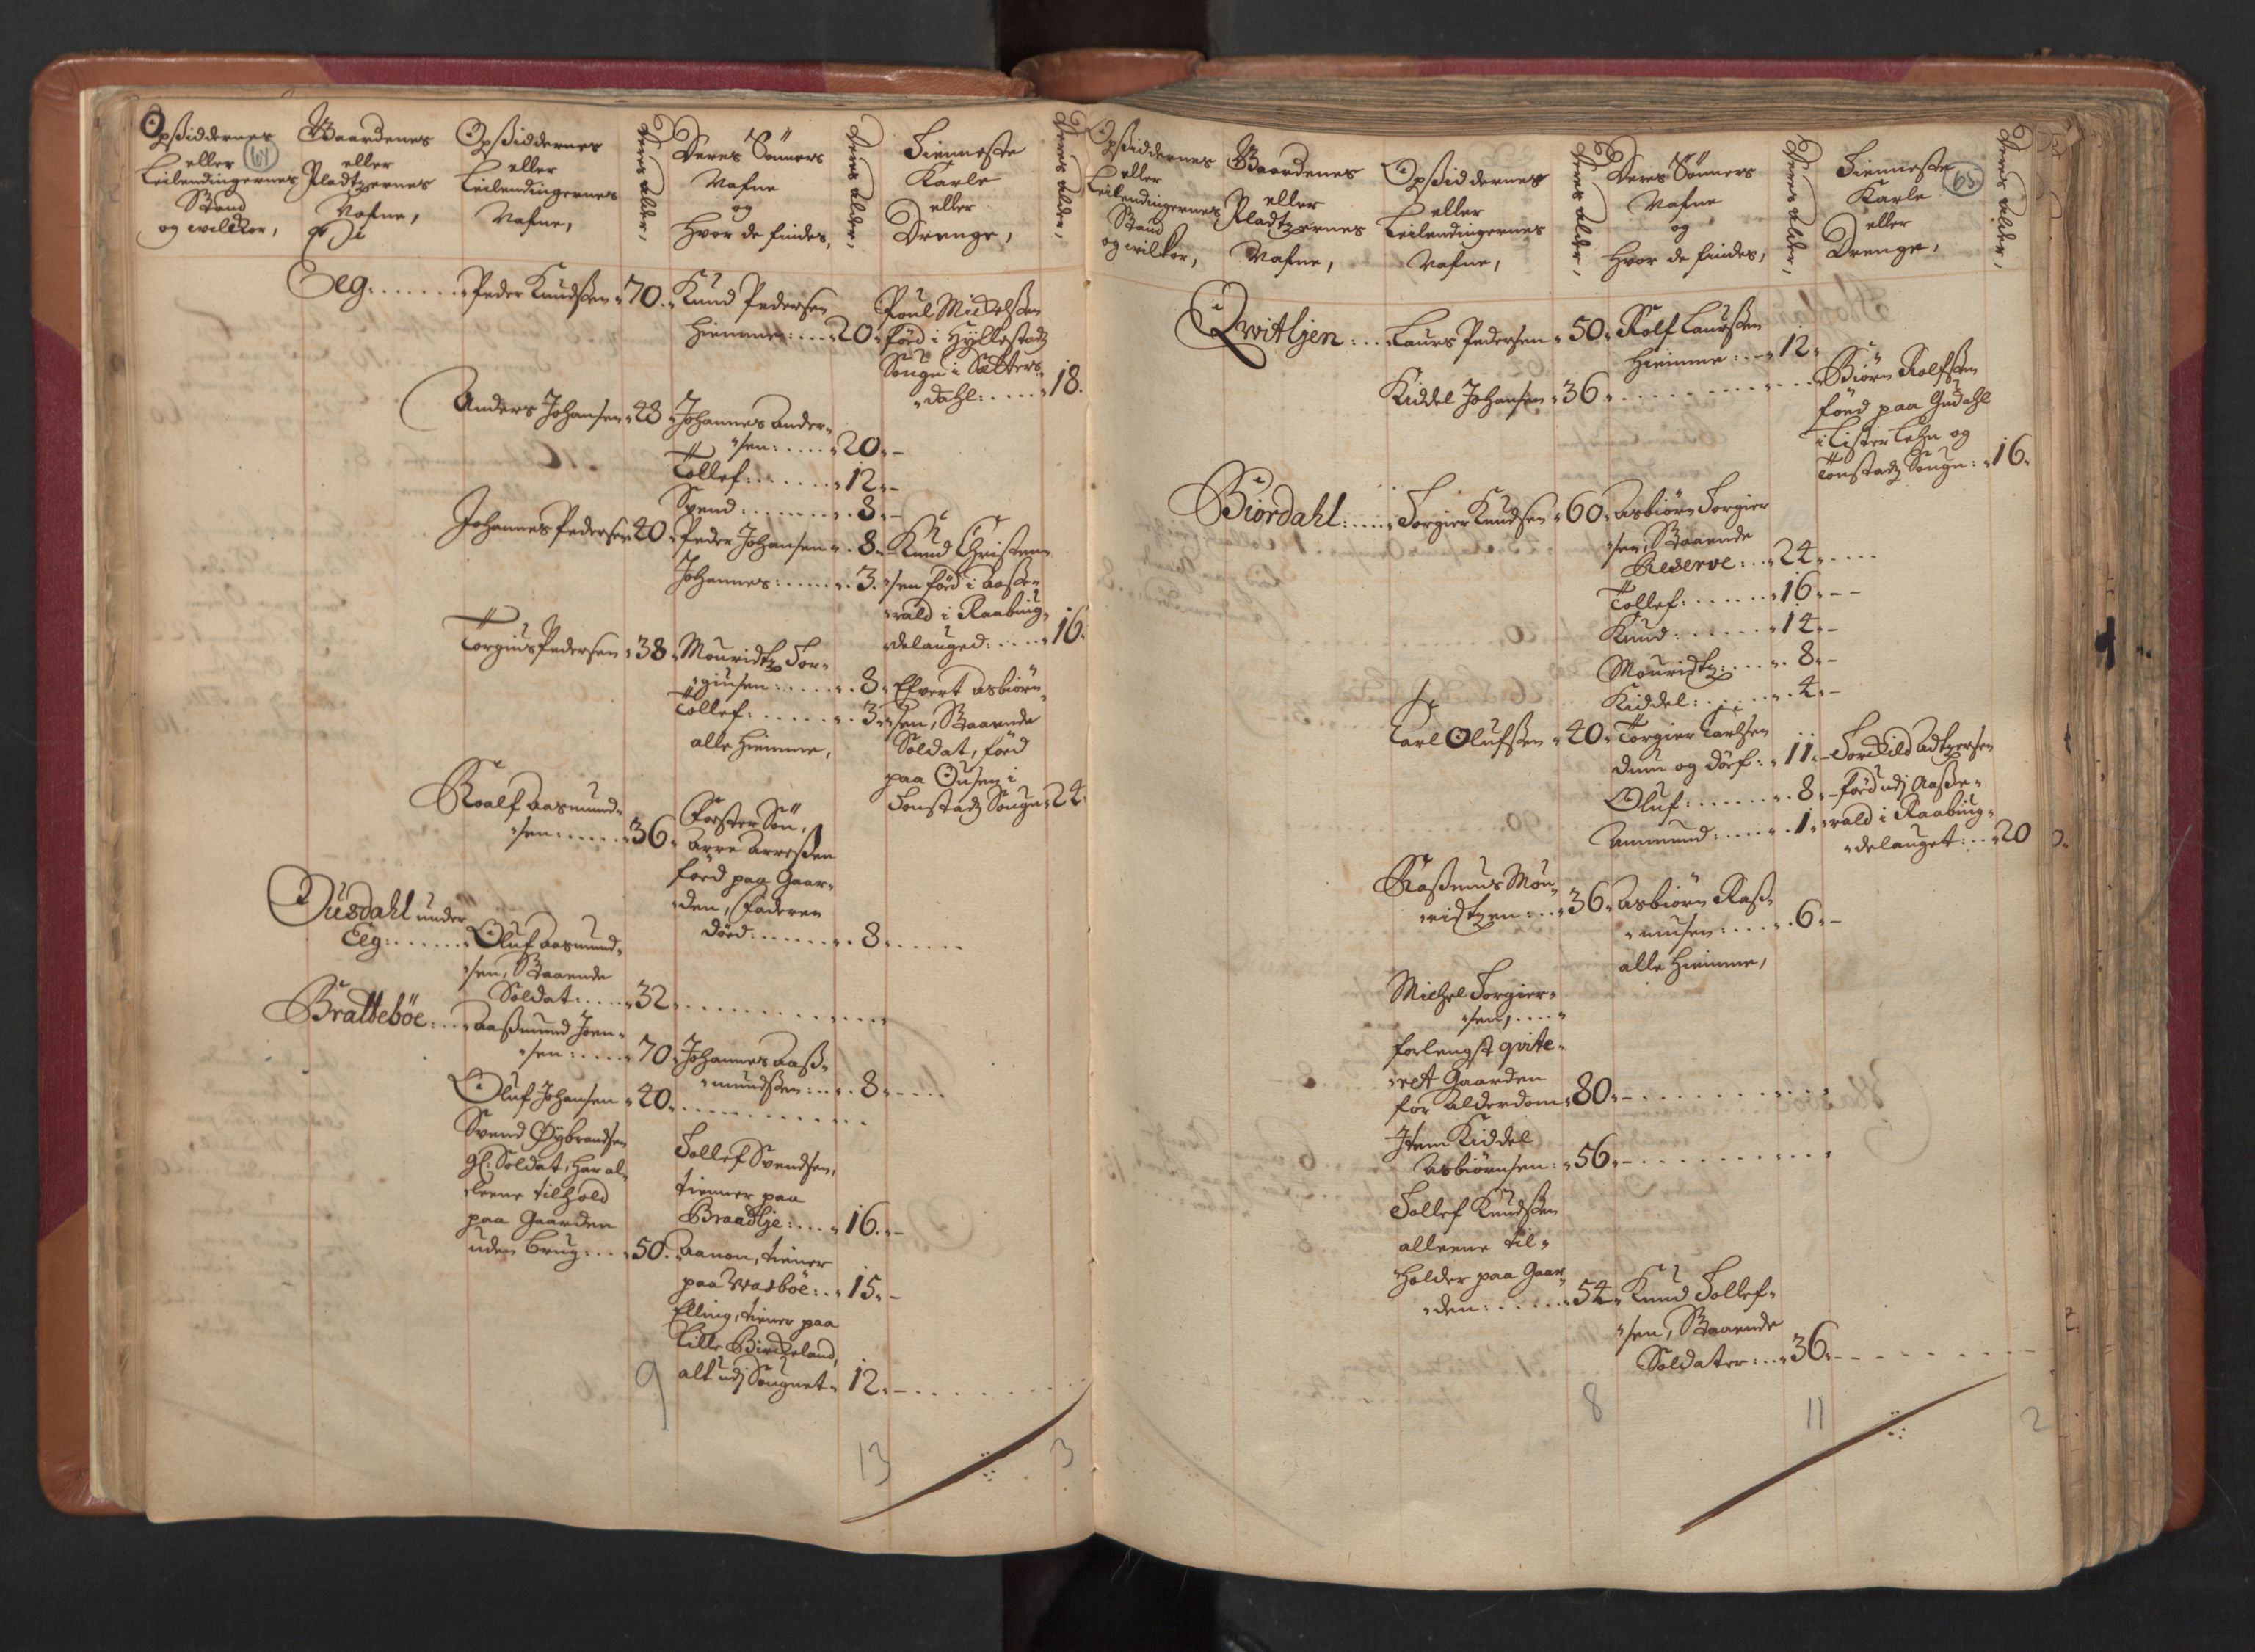 Opsiddernes
eller
Leilendingernes
Stand
og wilckor,
64
Gaardenes
eller
Pladtzernes
Nafne,
Opsiddernes
eller
Leilendingernes
Nafne,
Deres alder,
Deres Sönners
Nafne
og
Hvor de findes,
Deres alder,
Tienneste
Karle
eller
Drenge,
Deres alder,
Eeg: Peder Knudsen 70. Knud Pedersen
hiemme: 20.
Poul Mickelsen
föed i Hyllestadz
Sougn i Sætters-
dahl: 18.
Anders Johansen 48 Johannes Ander-
sen: 20.
Tollef: 12.
Svend: 8.
Johannes Pedersen 40 Peder Johansen 8.
Johannes: 3.
Knud Christen-
sen föed i Aasse-
rald i Raabiug-
delauged: 16.
Torgius Pedersen 38 Mouridtz Tor-
giusen: 8.
Tollef: 3.
alle hiemme,
Efvert Asbiörn-
sen, Staaende
Soldat, föed
paa Ousen i
Tonstadz Sougn 24.
Roalf Aasmund-
sen: 36.
Foster Sön,
Arre Arresen
föed paa Gaar-
den, Faderen
död: 8.
Ousdahl under
Eeg: Oluf Aasmund-
sen, Staaende
Soldat: 32.
Bratteböe: Aasmund Joen-
sen: 70. Johannes Aas-
mundsen: 8.
Oluf Johansen 40.
Svend Øybrandsen
gl: Soldat, har al-
leene tilhold
paa Gaarden
uden brug: 50.
Tollef Svendsen,
tienner paa
Braadlje: 16.
Aanon, tiener
paa Wasböe: 15.
Elling, tiener paa
Lille Birckeland,
alt udj Sougnet. 12.
9
13
3
Opsiddernes
eller
Leilendingernes
Stand
og wilkor,
Gaardenes
eller
Pladtzernes
Nafne,
Opsiddernes
eller
Leilendingernes
Nafne,
Deres alder,
Deres Sönners
Nafne
og
Hvor de findes,
Deres alder,
Tienneste
Karle
eller
Drenge,
65
Deres alder,
Qwitljen: Laurs Pedersen 50. Rolf Laursen
hiemme: 12.
Kiddel Johansen 36.
Biörn Rolfsen
föed paa Gudahl
i Lister Lehn og
Tonstadz Sougn: 16.
Biördahl: Torgier Knudsen 60. Asbiörn Torgier
sen, Staaende
Reserve: 24.
Tollef: 16.
Knud: 14.
Mouridtz: 8.
Kiddel: 4.
Carl Olufsen 40. Torgier Carlsen
dum og döef: 11.
Oluf: 8.
Ammund: 1.
Torckild Adtzersen
föed udj Aasse-
rald i Raabiug-
delauget: 20
Rasmus Mou-
ridtzen: 36. Asbiörn Ras-
musen: 6.
alle hiemme,
Michel Torgier-
sen,
forlengst qvite-
ret Gaarden
for alderdom 80.
Item Kiddel
Asbiörnsen: 56.
Tollef Knudsen
alleene til-
holder paa Gaar-
den: 54. Knud Tollef-
sen, Staaende
Soldater: 36.
8
11
2